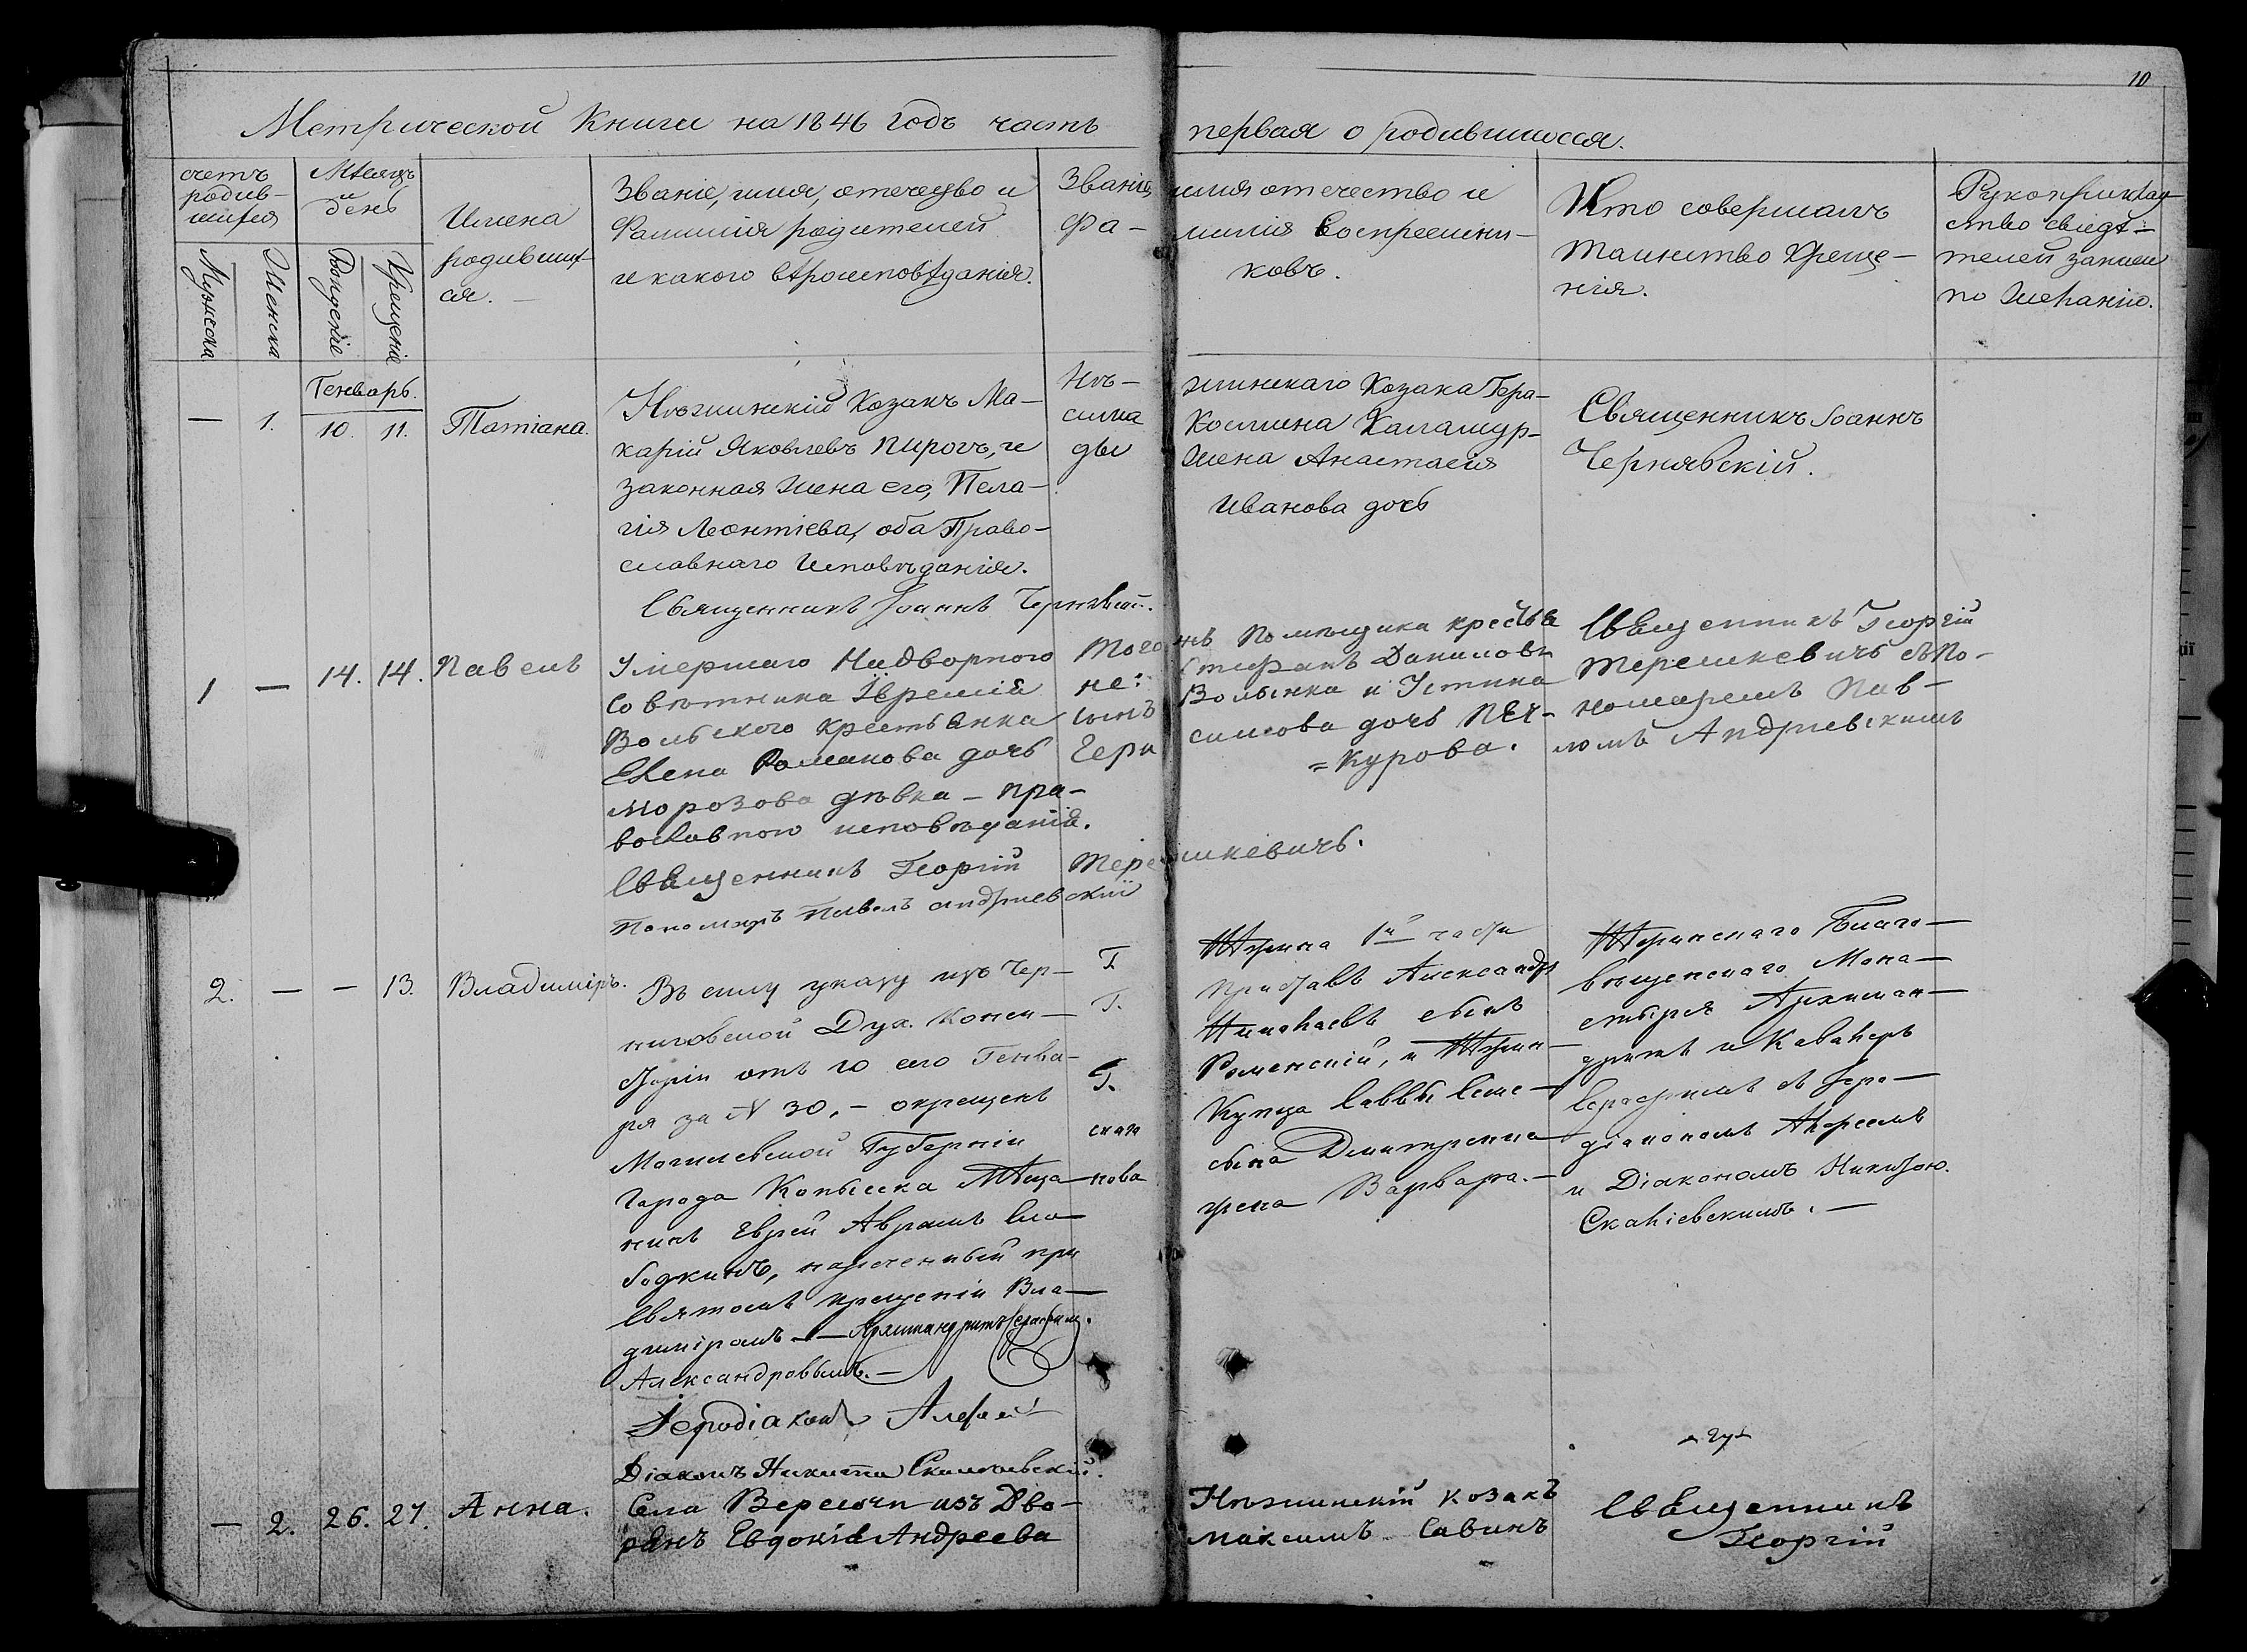 10
Метрической Книги на 1846 годъ часть первая о родившихся.
счетъ родив-шихся
Мѣсяцъ и день
Мужеска
Женска
Рожденіе
Крещеніе
Имена
родивших-
ся. —
Званіе, имя, отечество и
Фамилія родителей
и какого вѣроисповѣданія.
Званіе, имя отечество и
Фа- милія Воспреемни-
ковъ.
Кто совершалъ
таинство Креще-
нія.
Рукоприклад-
ство свидѣ-
телей записи
по Желанію.
Генварь.
— 1. 10. 11. Татіана.
Нѣжинскій Козакъ Ма-
карій Яковлевъ Пирогъ, и
законная жена его, Пела-
гія Леонтіева, оба Право-
славнаго Исповѣданія.
Священникъ Іоаннъ Чернявскій.
Нѣ- жинскаго Козака Гера-
сима Космина Каламур-
ды жена Анастасія
Иванова дочь
Священникъ Іоаннъ
Чернявскій.
1 — 14. 14. Павелъ
Умершаго Надворного
Совѣтника Іеремія
Вольского крестьянка
Елена Романова дочь
Морозова дѣвка — пра-
вославного исповѣданія.
Священникъ Георгій Терешкевичъ.
Пономарь Павелъ Андріевскій
Того жъ Помѣщика
Стефанъ Даниловъ
сынъ Волынка и Устина
симова дочь Печ-
=курова.
Священникъ Георгій
Терешкевичъ съ По-
номаремъ Пав-
ломъ Андріевскимъ
2. — — 13. Владиміръ.
Въ силу указу изъ Чер-
ниговской Дух. Конси-
сторіи отъ 10 сего Генва-
ря за N 30, — окрещенъ
Могилевской Губерніи
Города Копысска Мѣща-
нинъ Еврей Аврамъ Сло-
бодкинъ, нареченный при
Святомъ крещеніи Вла-
диміромъ — Архимандритъ Серафим.
Александровымъ. —
Іеродіаконъ
Діаконъ Никита
Г. Нѣжина 1й части
Г. Приставъ Александръ
Николаевъ сынъ
Г. Роменскій, и Нѣжин-
скаго Купца Саввы Семе-
нова сына Дмитренка
жена Варвара. —
Нѣжинскаго Благо-
вѣщенскаго Мона-
стыря Архиман-
дритъ и Кавалеръ
Серафимъ съ Іеро-
діакономъ
и Діакономъ Никитою.
Скаліевскимъ. —
— 2. 26. 27. Анна.
Села Вересочи изъ Дво-
рянъ Евдокія Андреева
Нѣжинскій козакъ
Максимъ Савинъ
Священникъ
Георгій